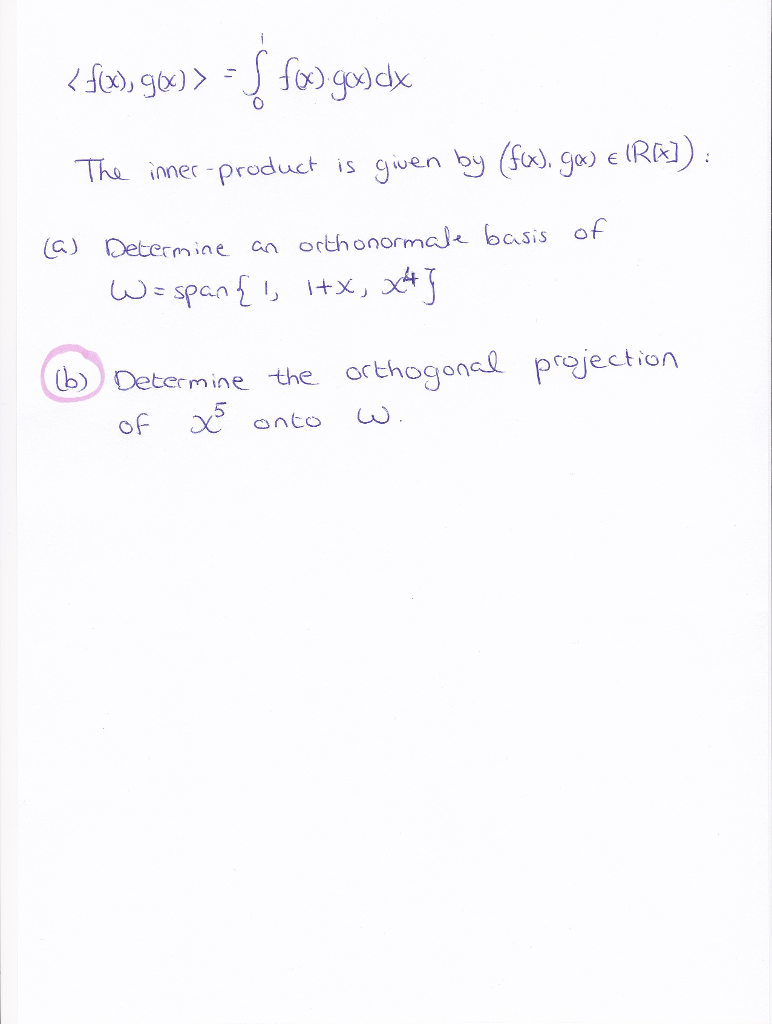 <f(x), g(x)> = ∫₀¹ f(x)·g(x)dx
The inner-product is given by (f(x), g(x) ∈ ℝ[x]) :
(a) Determine an orthonormale basis of
W = span{ 1, 1+x, x⁴}
(b) Determine the orthogonal projection
of x⁵ onto W.